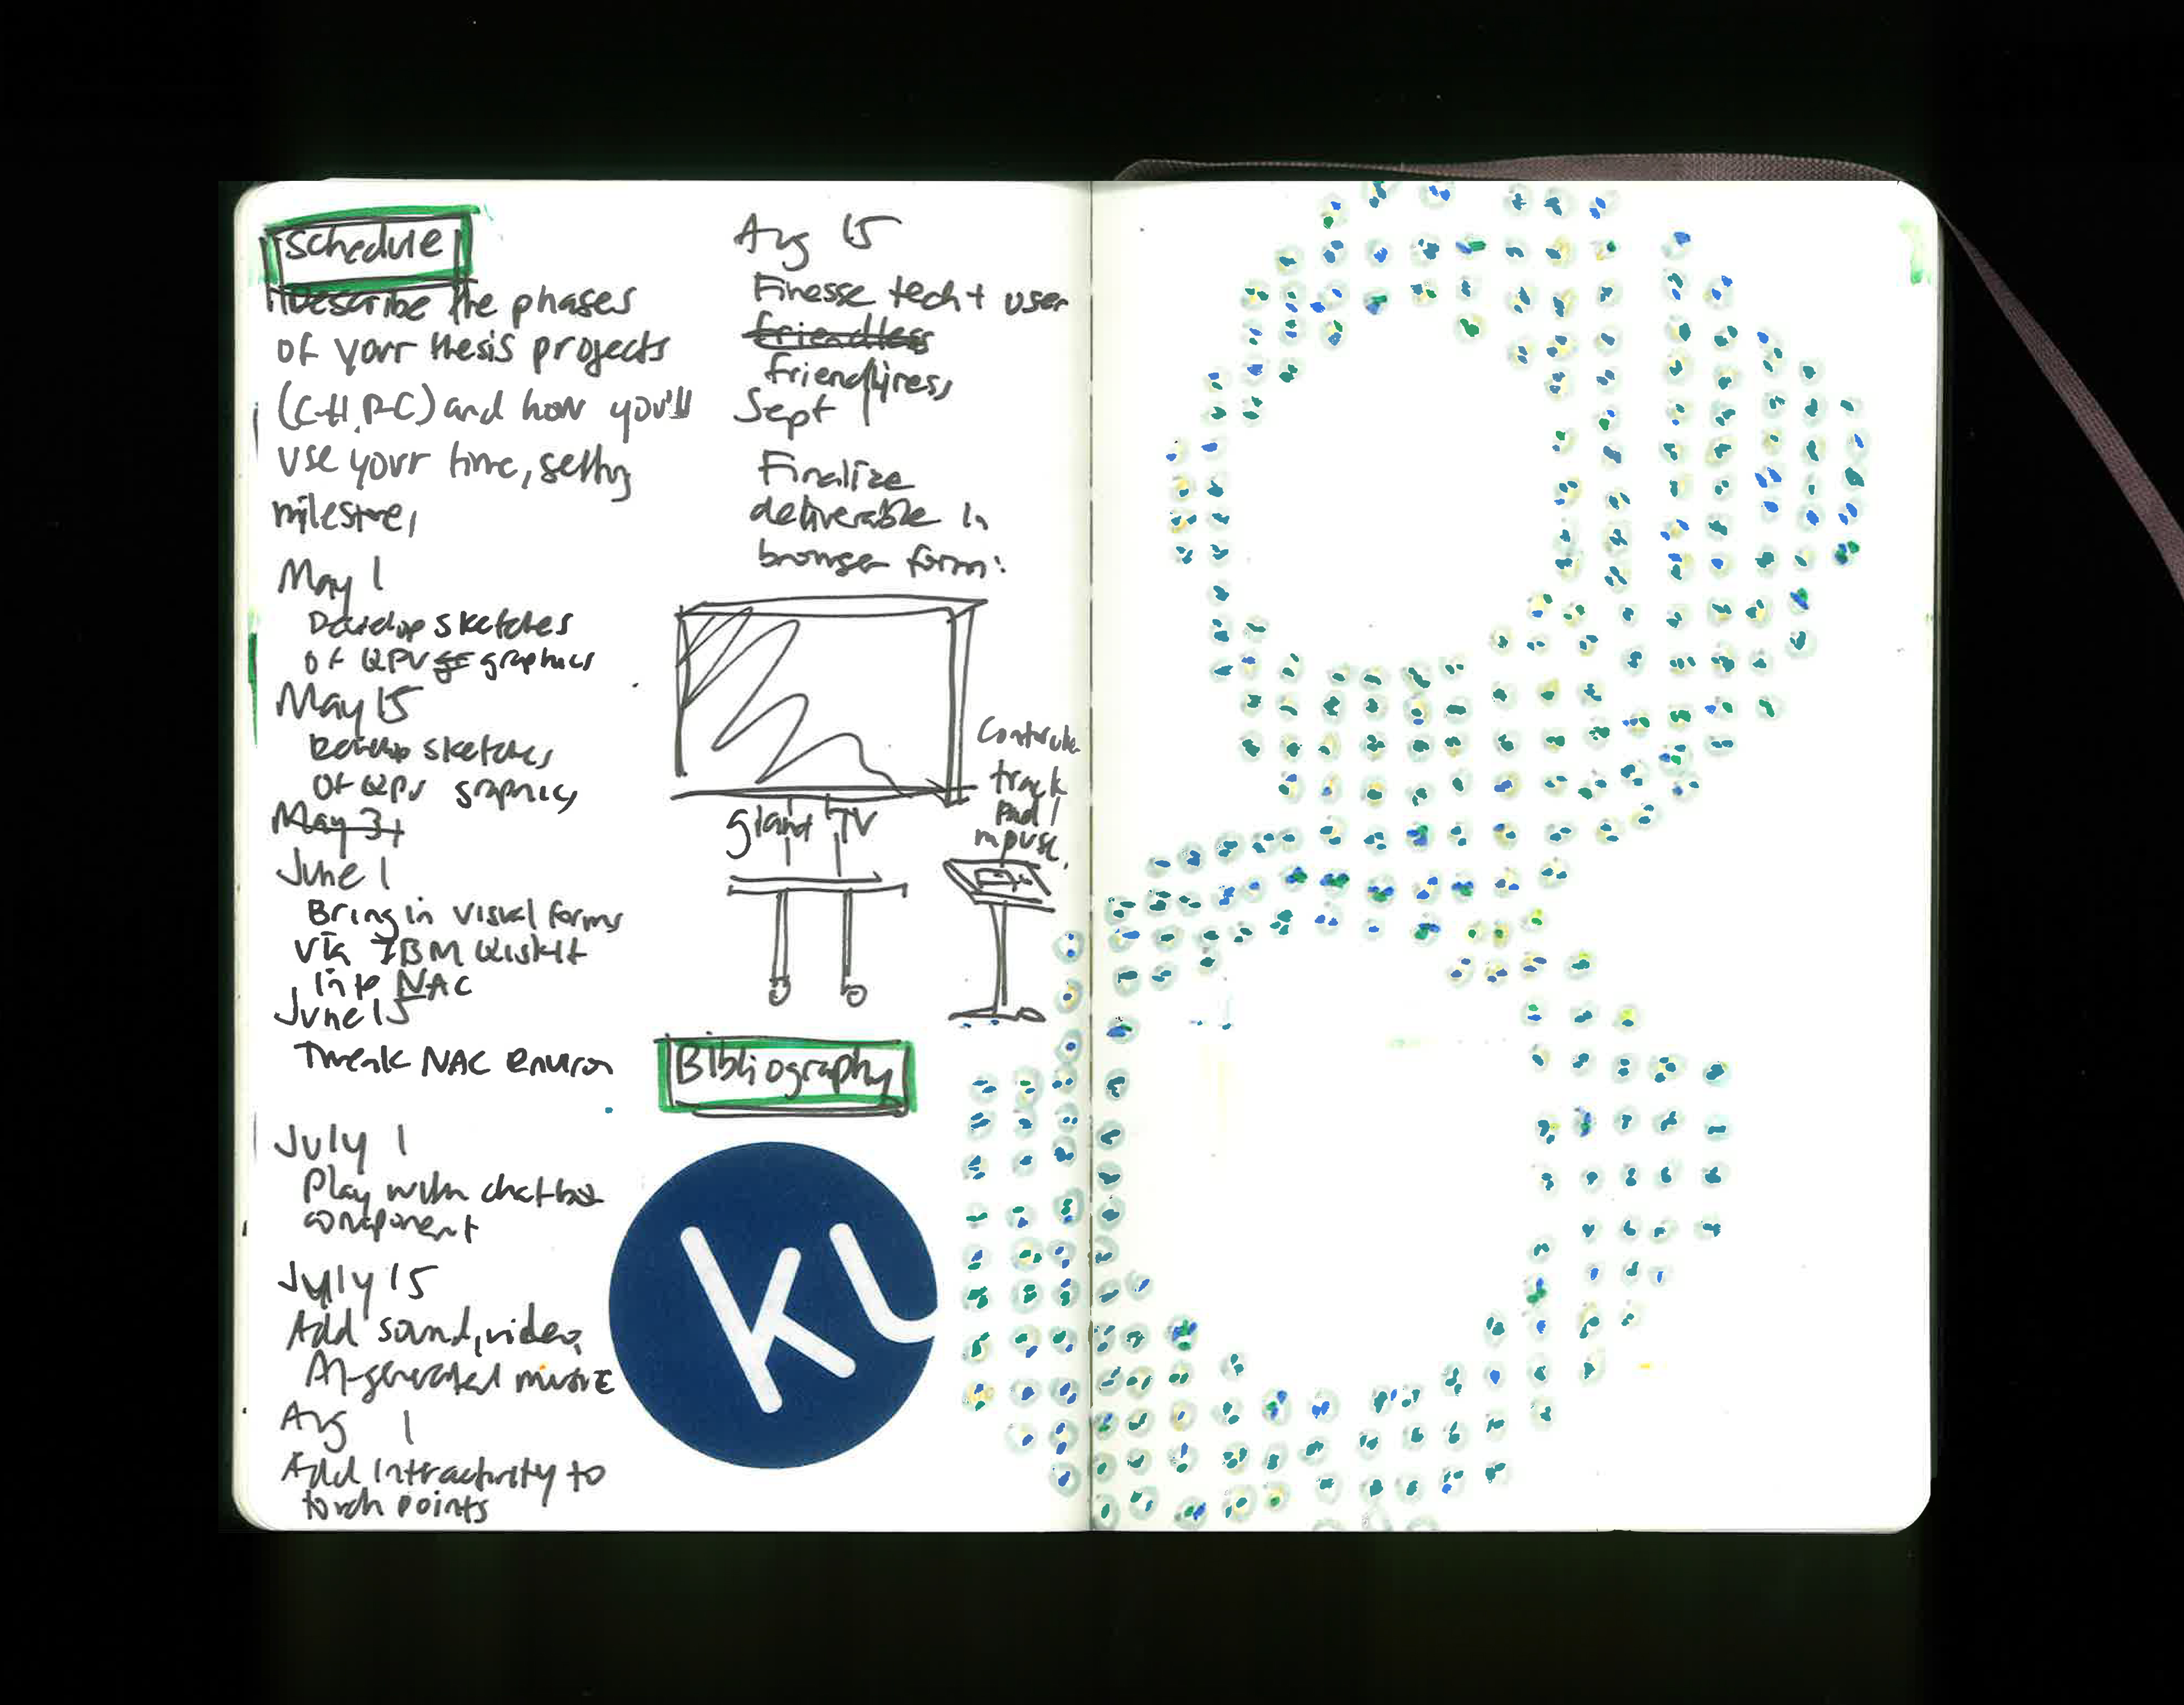 Schedule
Describe the phases
of your thesis projects
(CH, PC) and how you'll
use your time, setting
milestones
May 1
Develop sketches
of QPU graphics
May 15
Develop sketches
of QPU graphics
May 31
June 1
Bring in visual forms
via IBM Qiskit
into NAC
June 15
Tweak NAC environ
July 1
Play with chatbot
component
July 15
Add sound, video,
AI-generated music
Aug 1
Add interactivity to
torch points
Aug 15
Finesse tech + user
friendless
friendliness
Sept 1
Finalize
deliverable in
browser form:
giant TV
track
pad /
mouse.
Bibliography
ki